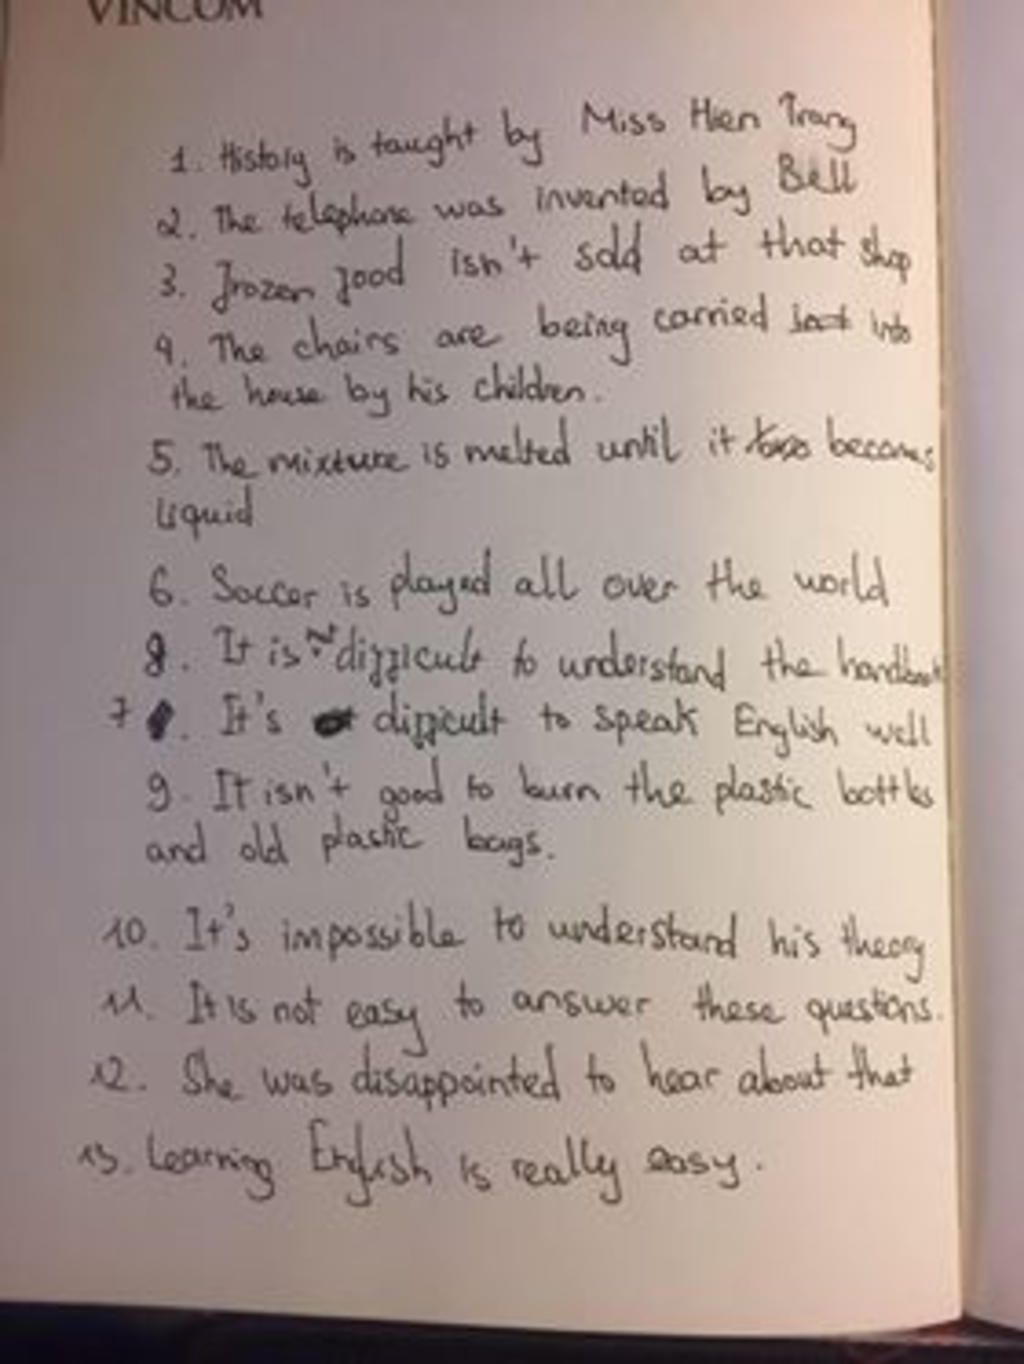 VINCOM
1. History is taught by Miss Hien Trang
2. The telephone was invented by Bell
3. Frozen food isn't sold at that shop
4. The chairs are being carried into
the house by his children.
5. The mixture is melted until it becomes
liquid
6. Soccer is played all over the world
8. It is n't difficult to understand the handbook
7. It's difficult to speak English well
9. It isn't good to burn the plastic bottles
and old plastic bags.
10. It's impossible to understand his theory
11. It is not easy to answer these questions.
12. She was disappointed to hear about that
13. Learning English is really easy.